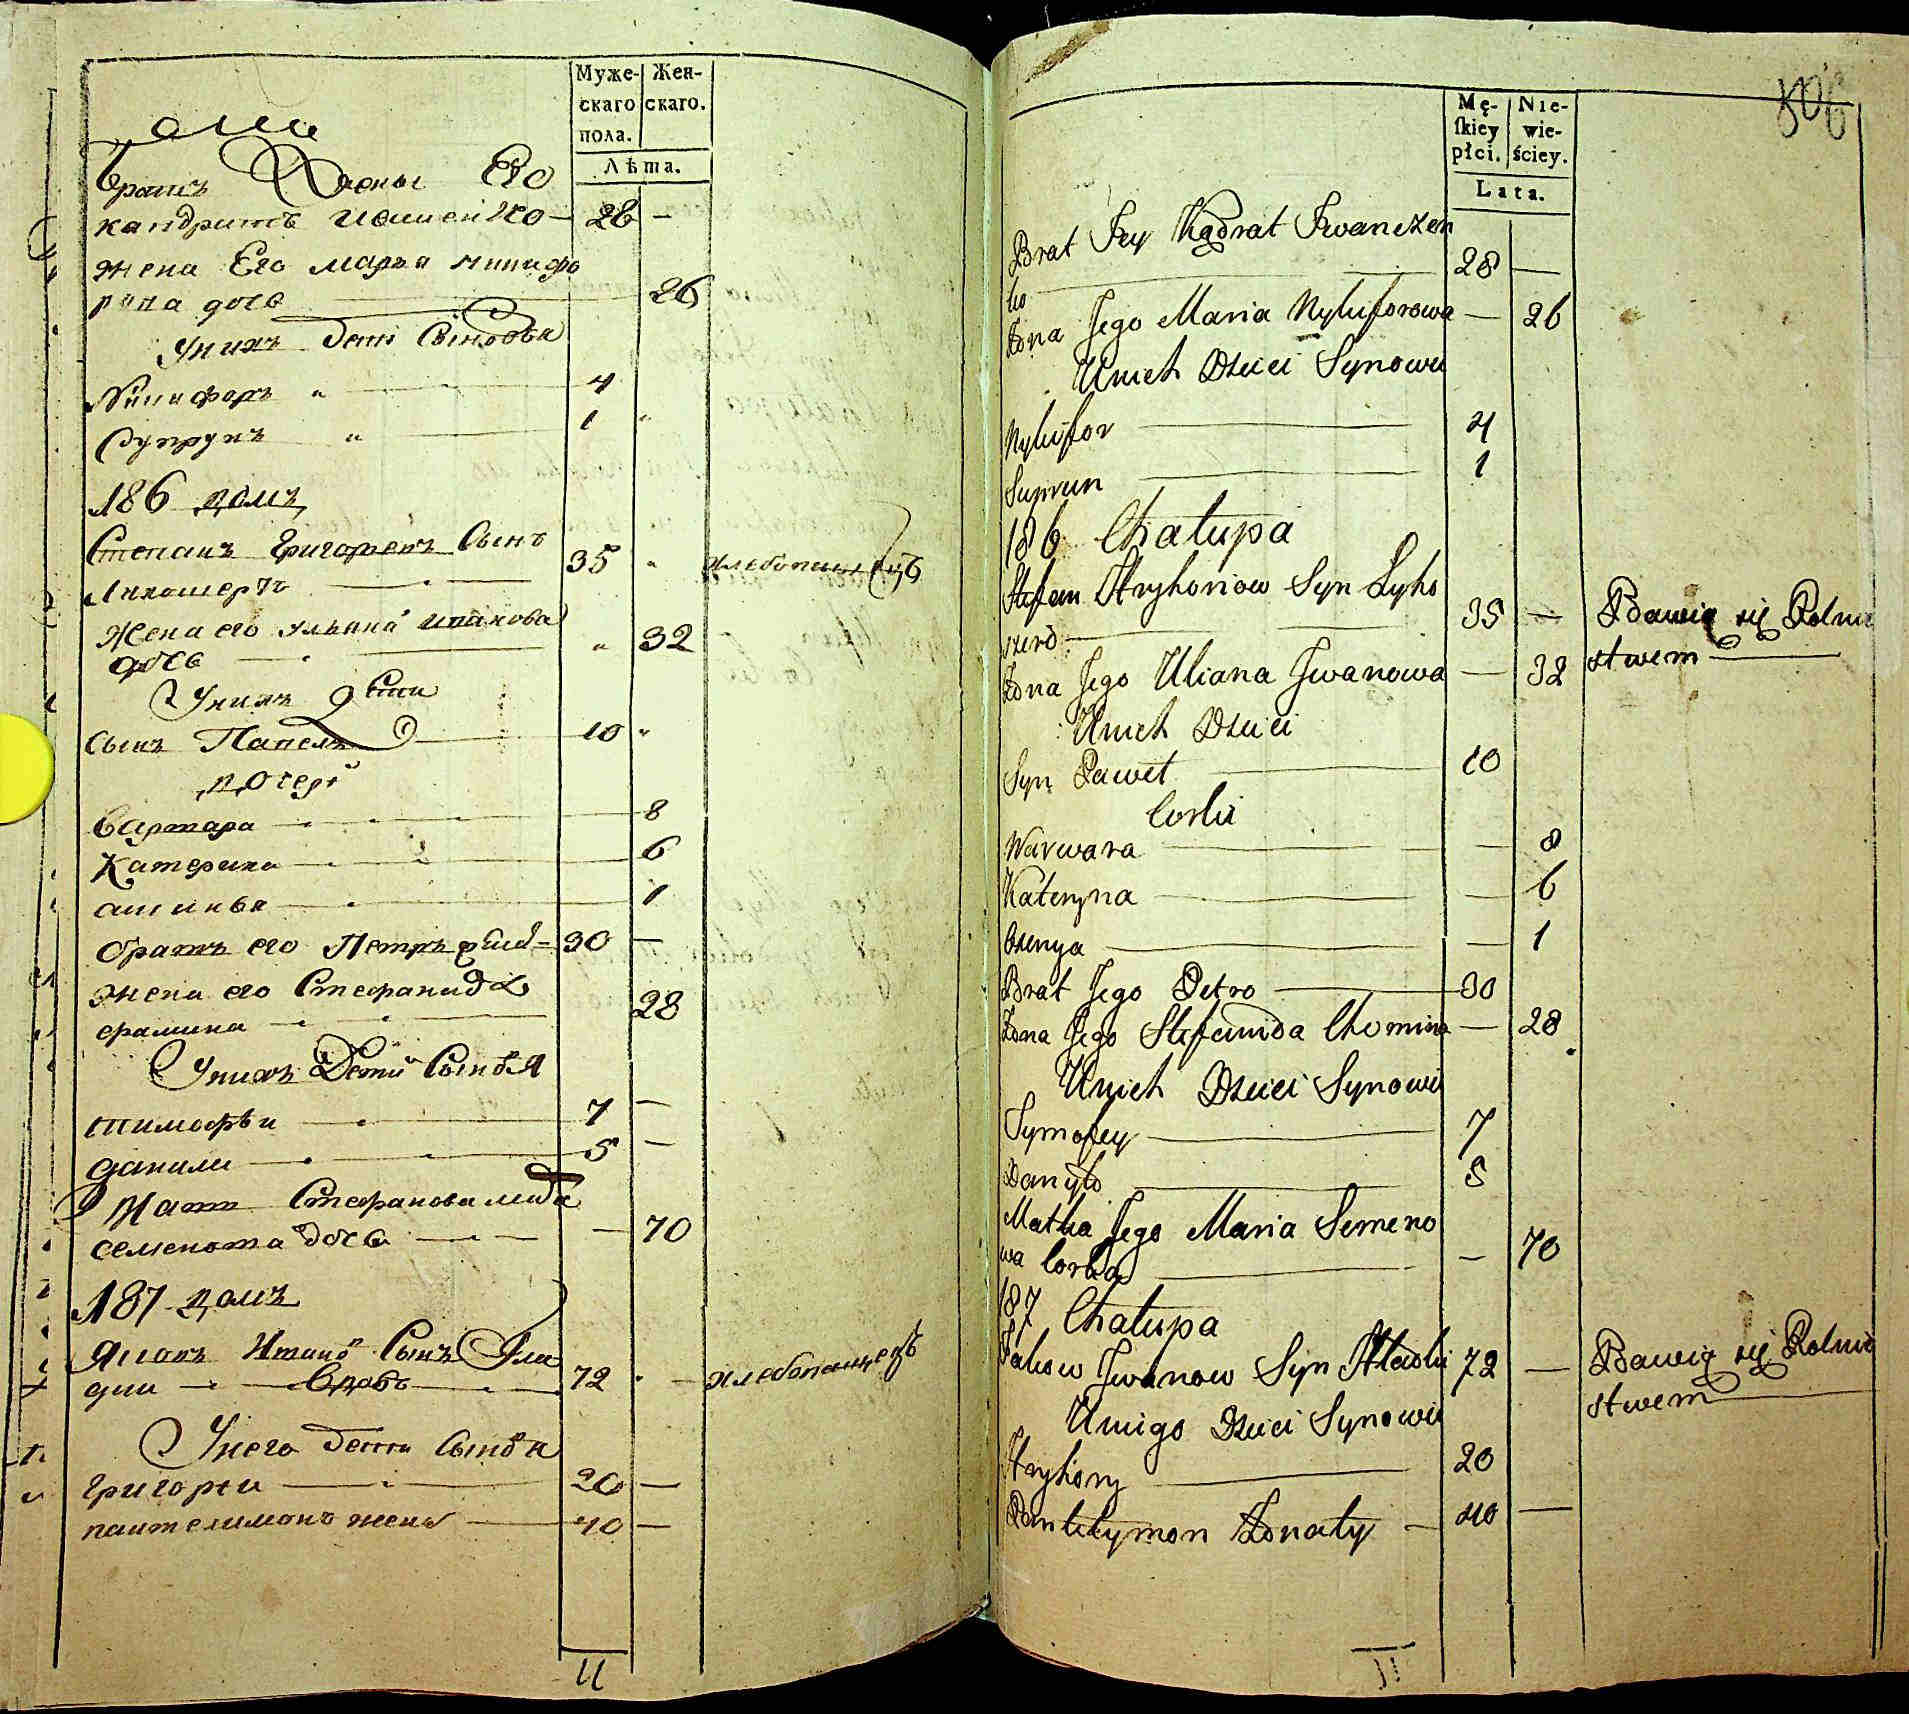 Муже-
скаго
пола.
Жен-
скаго.
Лѣта.
братъ Жены Его
кандратъ 28 —
жена Его марья никифо
рова дочь 26
Унихъ дети Сыновья
Никифоръ 4
Супрунъ 1
186 домъ
Степанъ Григорьевъ Сынъ
Лихошерстъ 35 хлебопашецъ
Жена его ульяна иванова
дочь 32
Унихъ дети
Сынъ Павелъ 10
дочери
Варвара 8
Катерина 6
1
братъ его Петръ 30 —
жена его Стефанида
фомина 28
Унихъ Дети Сыновя
тимофеи 7 —
данило 5 —
Мать Стефанова
семенова дочь — 70
187 домъ
Яковъ Ивановъ Сынъ Гла
дки Вдовъ 72 хлебопашецъ
Унего дети Сыновя
Григореи 20 —
пантелимонъ женатъ 40 —
11
806
Mę-
skiey
płci.
Nie-
wie-
ściey.
Lata.
Brat Żey Kądrat Iwanczen
ko 28 —
Żona Jego Maria Nykiforowa — 26
Unich Dzieci Synowie
Nykifor 4
Suprun 1
186 Chałupa
Stefan Hryhoriow Syn Lycho
szerd 35 — Bawią się Rolnic
Żona Jego Uliana Iwanowa — 32 stwem
Unich Dzieci
Syn Paweł 10
Corki
Warwara — 8
Kateryna — 6
— 1
Brat Jego Petro 30
Żona Jego Stefanida Chomina — 28
Unich Dzieci Synowie
Tymofey 7
Danyło 5
Matka Jego Maria Semeno
wa Corka — 70
187 Chałupa
Jakow Iwanow Syn Hładki 72 — Bawią się Rolnic
stwem
Uniego Dzieci Synowie
Hryhory 20
Pantełymon Żonaty — 40 —
11